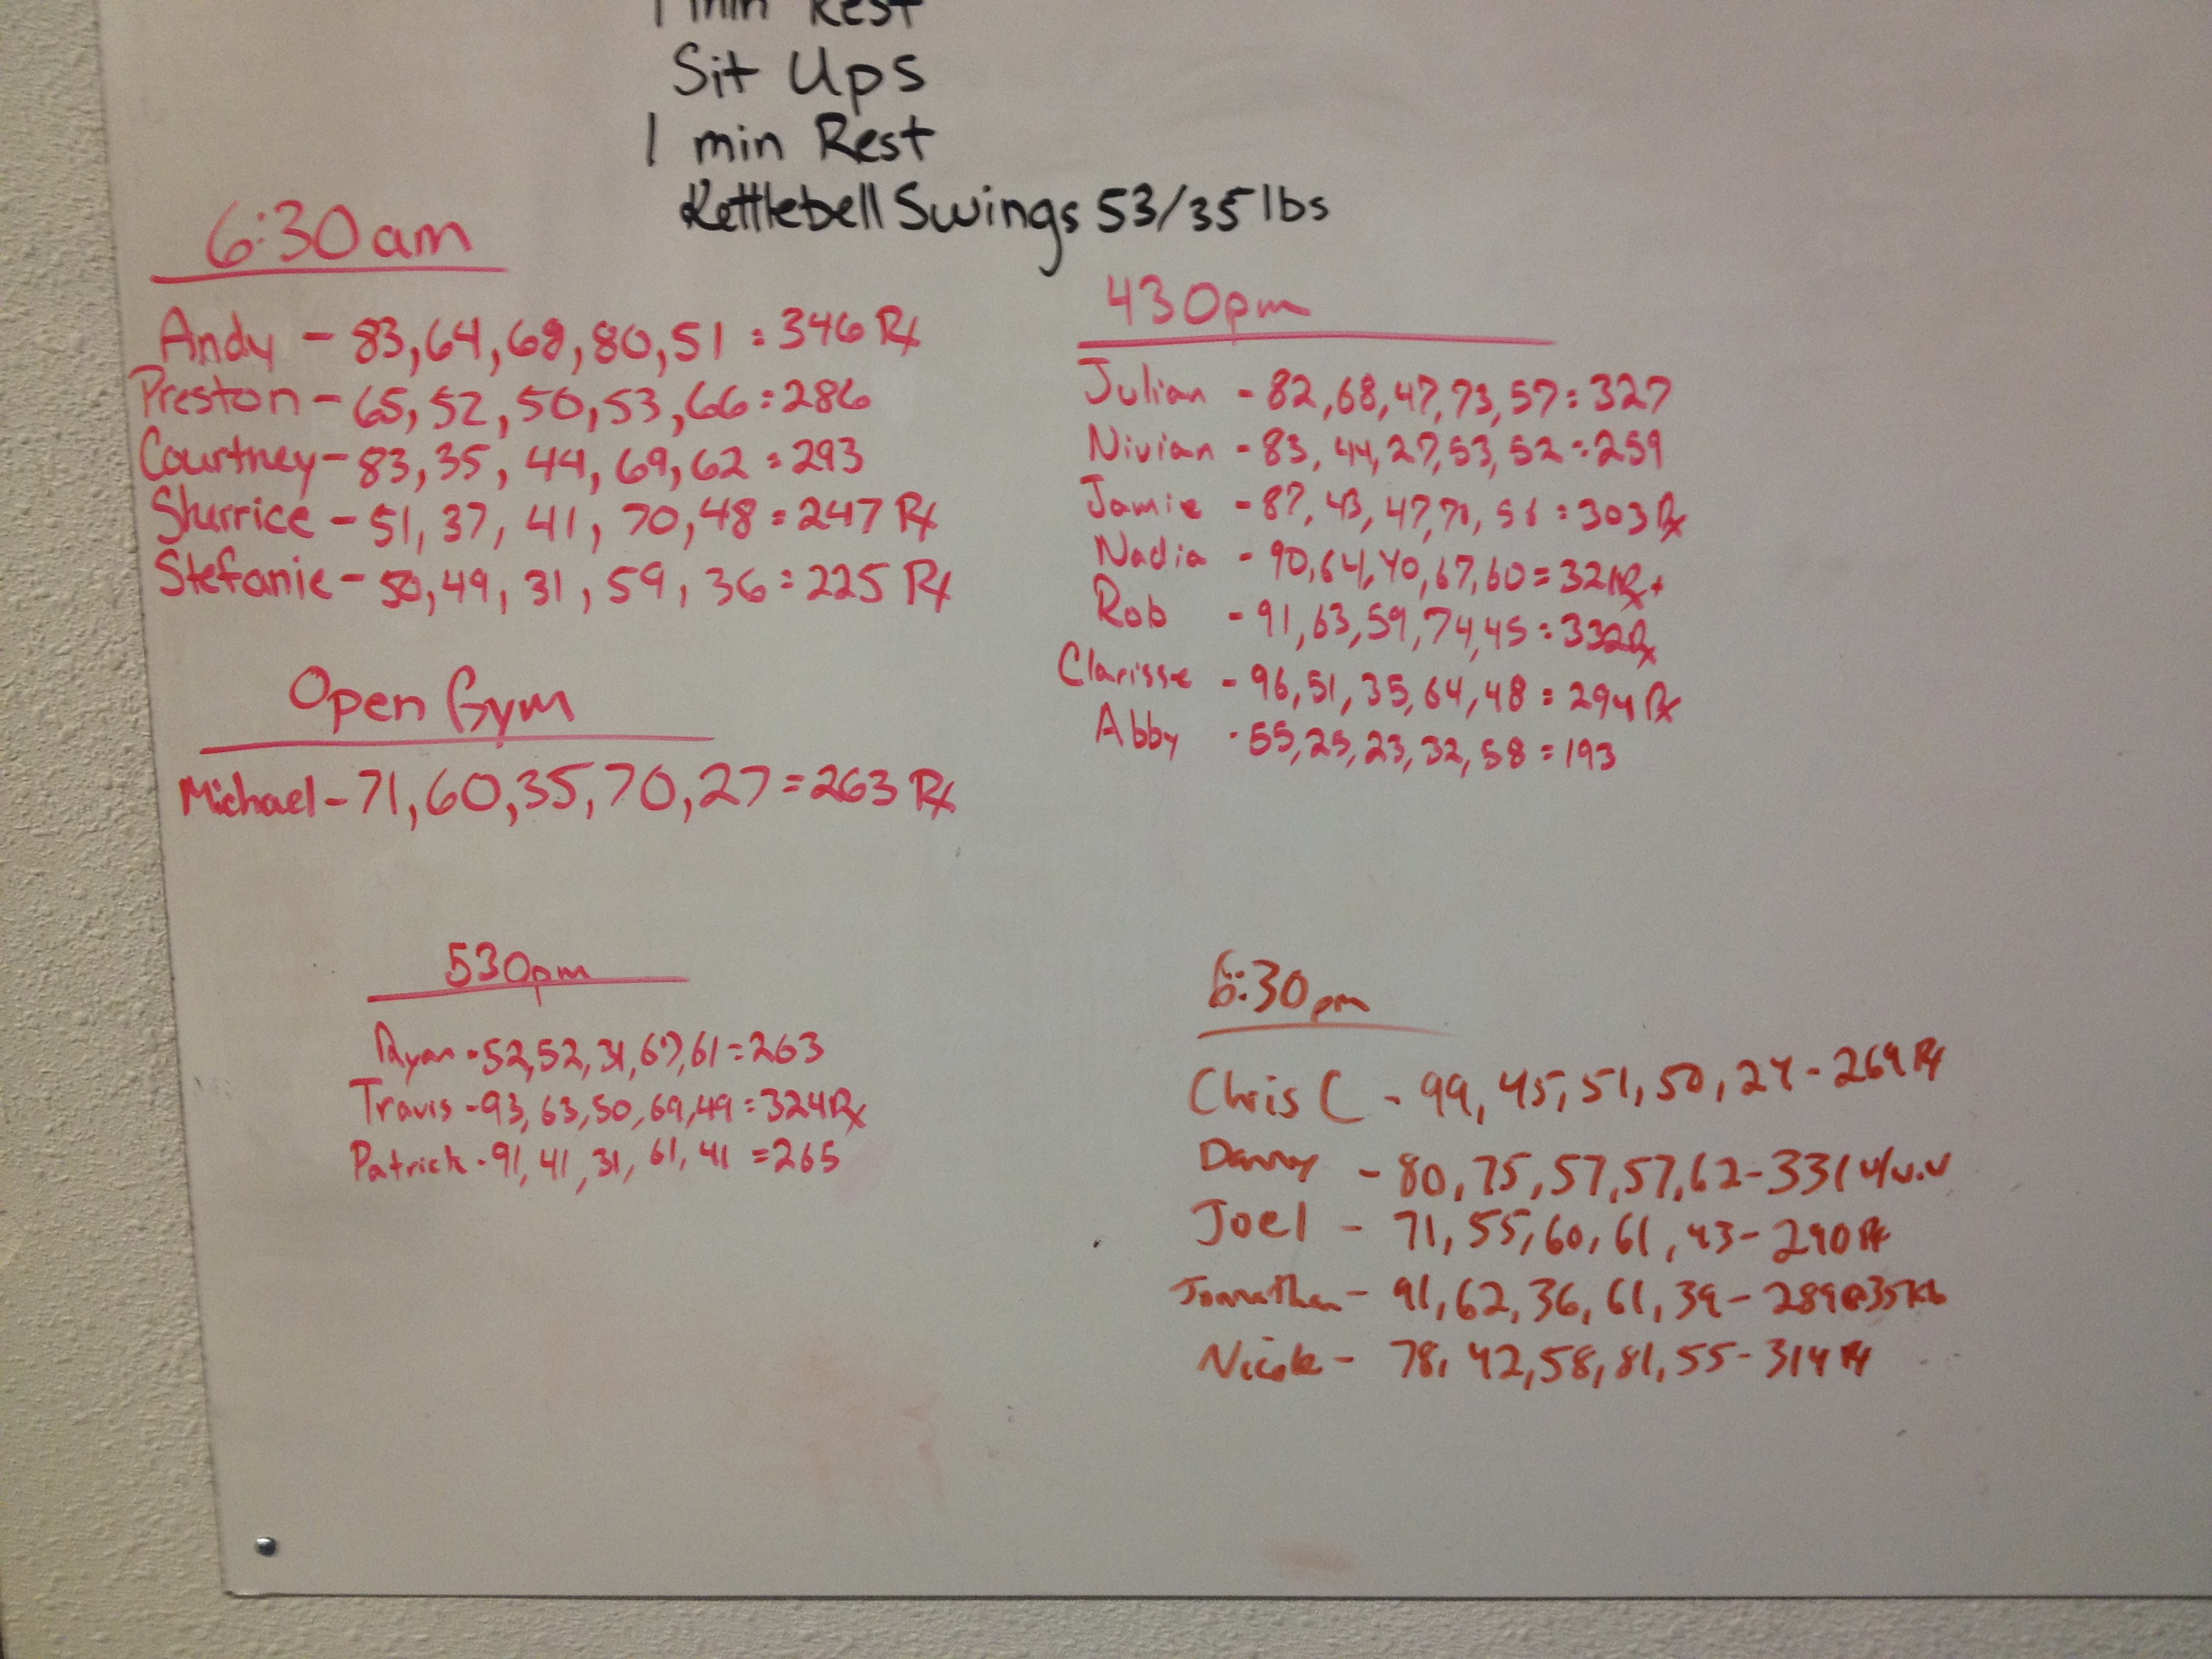 1 min Rest
Sit Ups
1 min Rest
Kettlebell Swings 53/35 lbs
6:30am
Andy - 83,64,68,80,51 = 346 Rx
Preston - 65, 52, 50, 53, 66 = 286
Courtney - 83, 35, 44, 69, 62 = 293
Shurrice - 51, 37, 41, 70, 48 = 247 Rx
Stefanie - 50, 49, 31, 59, 36 = 225 Rx
Open Gym
Michael - 71, 60, 35, 70, 27 = 263 Rx
430pm
Julian - 82,68,47,73,57 = 327
Nivian - 83, 44, 27, 53, 52 = 259
Jamie - 87, 43, 47, 70, 56 = 303 Rx
Nadia - 90, 64, 40, 67, 60 = 321 Rx+
Rob - 91, 63, 59, 74, 45 = 332 Rx
Clarisse - 96, 51, 35, 64, 48 = 294 Rx
Abby - 55, 25, 23, 32, 58 = 193
530pm
Ryan - 52, 52, 31, 67, 61 = 263
Travis - 93, 63, 50, 69, 49 = 324 Rx
Patrick - 91, 41, 31, 61, 41 = 265
6:30pm
Chris C - 99, 45, 51, 50, 24 - 269 Rx
Danny - 80, 75, 57, 57, 62 - 331
Joel - 71, 55, 60, 61, 43 - 290 Rx
Jonathan - 91, 62, 36, 61, 39 - 289 @35kb
Nicole - 78, 42, 58, 81, 55 - 314 Rx